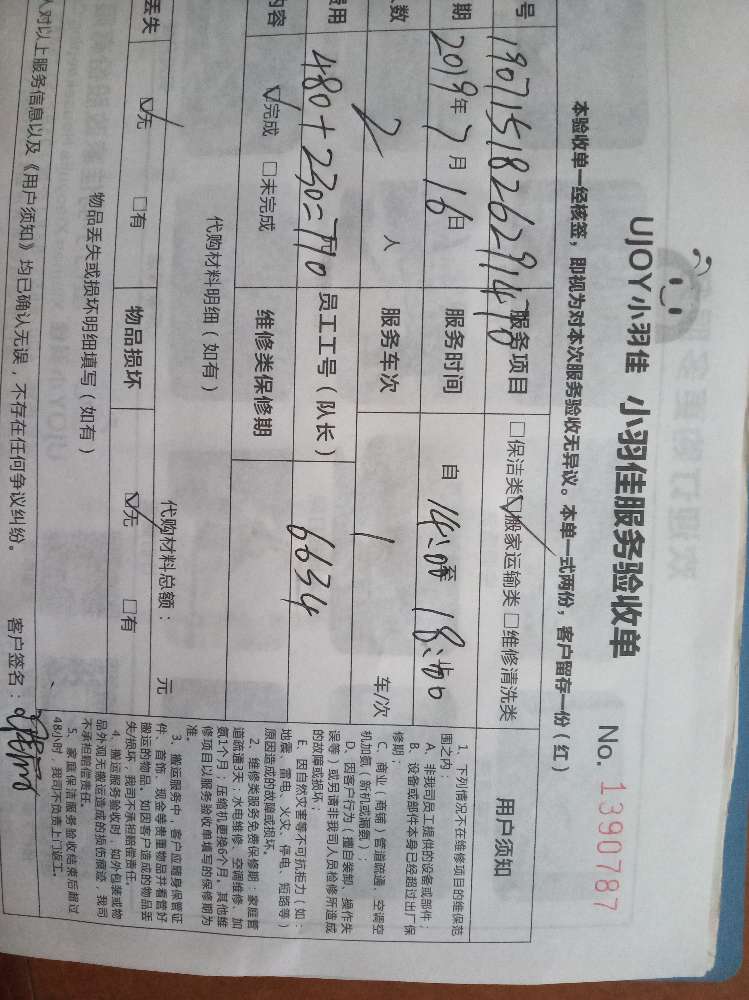 UJOY小羽佳 小羽佳服务验收单 No. 1390787
本验收单一经核签，即视为对本次服务验收无异议。本单一式两份，客户留存一份（红）
号 1907151826291470 服务项目 □保洁类 ☑搬家运输类 □维修清洗类
期 2019年7月16日 服务时间 自 14:00 至 18:00
数 2 人 服务车次 1 车/次
费用 480+230=710 员工工号（队长） 6634
内容 ☑完成 □未完成 维修类保修期
代购材料明细（如有） 代购材料总额： 元
丢失 ☑无 □有 物品损坏 ☑无 □有
物品丢失或损坏明细填写（如有）
人对以上服务信息以及《用户须知》均已确认无误，不存在任何争议纠纷。 客户签名：
用户须知
1、下列情况不在维修项目的维保范
围之内：
A、非我司员工提供的设备或部件；
B、设备或部件本身已经超过出厂保
修期；
C、商业（商铺）管道疏通、空调空
机加氨（新机或漏氨）；
D、因客户行为（擅自装卸、操作失
误等）或另请非我司人员检修所造成
的故障或损坏；
E、因自然灾害等不可抗拒力（如：
地震、雷电、火灾、停电、短路等）
原因造成的故障或损坏。
2、维修类服务免费保修期：家庭管
道疏通3天；水电维修、空调维修、加
氨1个月；压缩机更换6个月。其他维
修项目以服务验收单填写的保修期为
准。
3、搬运服务中，客户应随身保管证
件、首饰、现金等贵重物品并看管好
搬运的物品。如因客户造成的物品丢
失/损坏，我司不承担赔偿责任。
4、搬运服务验收时，如外包装或物
品外观无搬运造成的损伤痕迹，我司
不承担赔偿责任。
5、家庭保洁服务验收结束后超过
48小时，我司不负责上门返工。